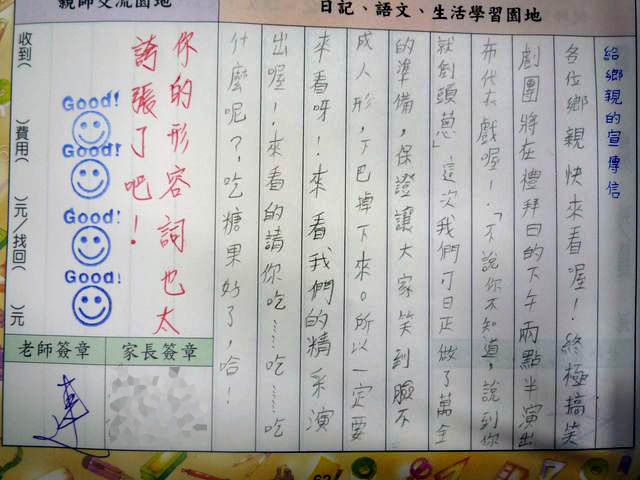 日記、語文、生活學習園地
給鄉親的宣傳信
各位鄉親快來看喔！終極搞笑
劇團將在禮拜日的下午兩點半演出
布代衣戲喔！「不說你不知道，說到你
就創頭蔥」這次我們可日正做了萬全
的準備，保證讓大家笑到臉不
成人形，下巴掉下來。所以一定要
來看呀！來看我們的精采演
出喔！來看的請你吃……吃……吃
什麼呢？，吃糖果好了，哈！
親師交流園地
你的形容詞也太
誇張了吧！
Good!
Good!
Good!
Good!
收到(　)費用(　)元/找回(　)元
家長簽章
老師簽章